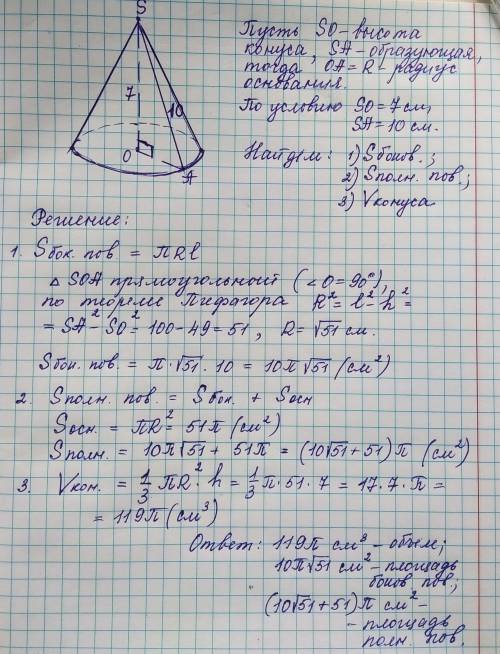 S
7
10
O
A
Пусть SO - высота
конуса, SA - образующая,
тогда OA = R - радиус
основания.
По условию SO = 7 см,
SA = 10 см.
Найдём: 1) Sбоков.;
2) Sполн. пов.;
3) Vконуса
Решение:
1. Sбок. пов = πRl
△ SOA прямоугольный (∠O = 90°),
по теореме Пифагора R² = l² - h² =
= SA² - SO² = 100 - 49 = 51, R = √51 см.
Sбок. пов. = π·√51·10 = 10π√51 (см²)
2. Sполн. пов. = Sбок. + Sосн
Sосн. = πR² = 51π (см²)
Sполн. = 10π√51 + 51π = (10√51 + 51)π (см²)
3. Vкон. = 1/3 πR²·h = 1/3 π·51·7 = 17·7·π =
= 119π (см³)
Ответ: 119π см³ - объём;
10π√51 см² - площадь
боков пов;
(10√51 + 51)π см² -
- площадь
полн. пов.